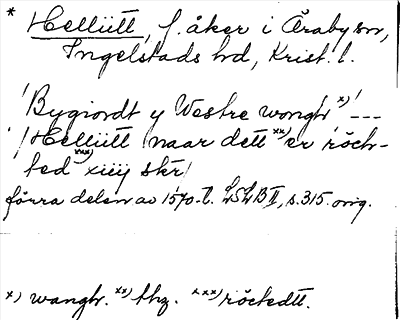 * Hellütt, f. åker i Åraby sn,
Ingelstads hd, Krist. l.
/Bygiordt y Westre wongh x) ---
/Hellütt naar dett xx) er röck-
ted xxx) xiiij skr/
förra delen av 1570-t. LSLB II, s. 315. orig.
x) wangh. xx) thz. xxx) röckedtt.